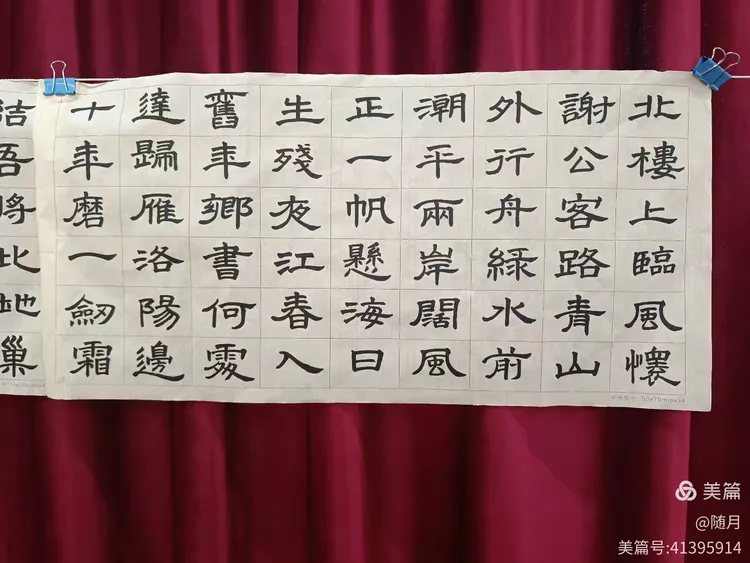 北樓上臨風懷
謝公客路青山
外行舟綠水前
潮平兩岸闊風
正一帆懸海日
生殘夜江春入
舊年鄉書何處
達歸雁洛陽邊
十年磨一劍霜
結吾將此地巢
美篇
@随月
美篇号:41395914